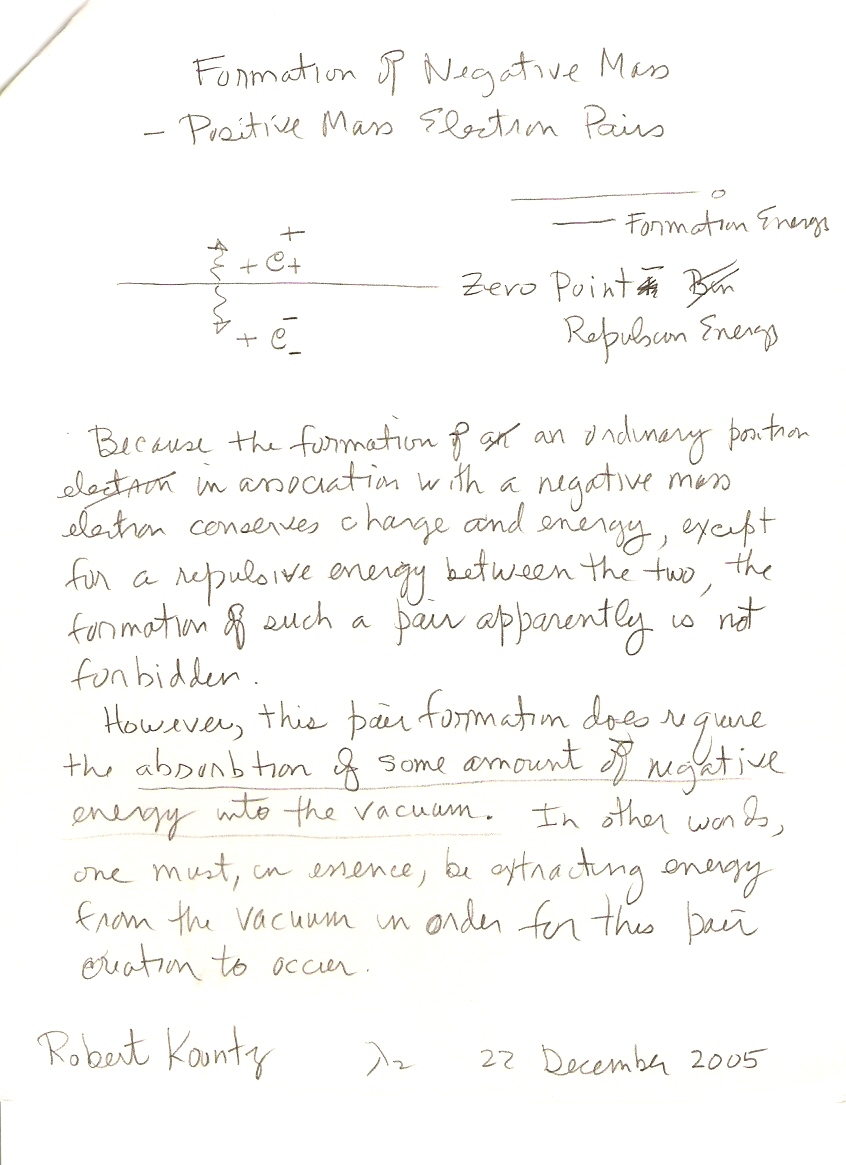 Formation of Negative Mass
- Positive Mass Electron Pairs
o
— Formation Energy
+ e + +
Zero Point
+ e - -
Repulsion Energy
Because the formation of an ordinary positron
electron in association with a negative mass
electron conserves charge and energy, except
for a repulsive energy between the two, the
formation of such a pair apparently is not
forbidden.
However, this pair formation does require
the absorbtion of some amount of negative
energy into the vacuum. In other words,
one must, in essence, be extracting energy
from the vacuum in order for this pair
creation to occur.
Robert Kountz λ2 22 December 2005